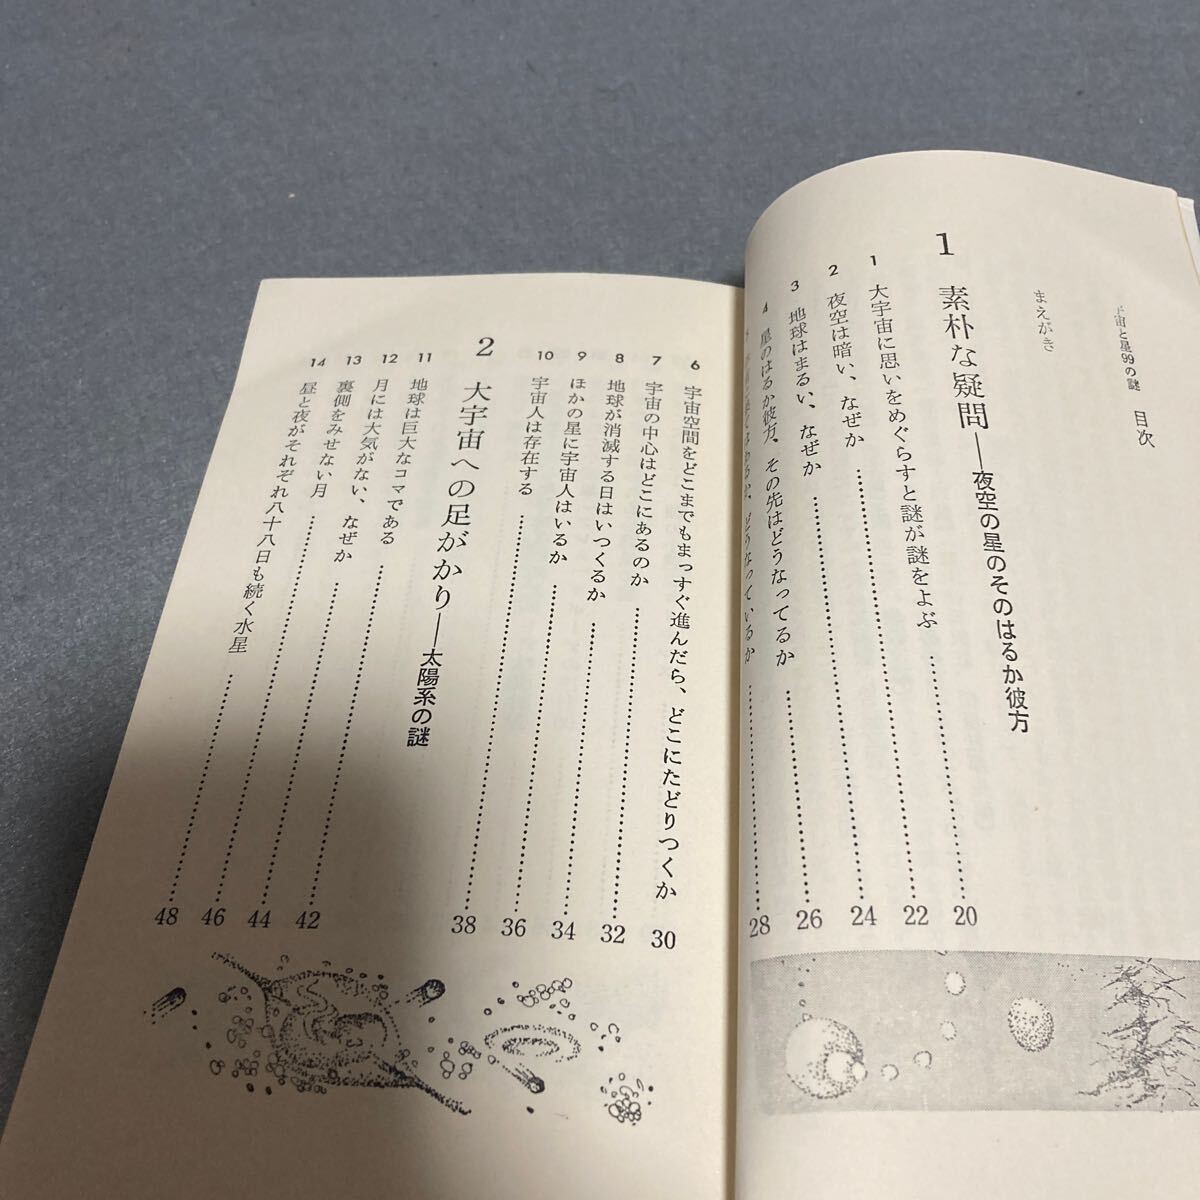 宇宙と星99の謎 目次
まえがき
1 素朴な疑問——夜空の星のそのはるか彼方
1 大宇宙に思いをめぐらすと謎が謎をよぶ…………20
2 夜空は暗い、なぜか…………22
3 地球はまるい、なぜか…………24
4 星のはるか彼方、その先はどうなってるか…………26
どうなっているか…………28
6 宇宙空間をどこまでもまっすぐ進んだら、どこにたどりつくか…………30
7 宇宙の中心はどこにあるのか…………32
8 地球が消滅する日はいつくるか…………34
9 ほかの星に宇宙人はいるか…………36
10 宇宙人は存在する…………38
2 大宇宙への足がかり——太陽系の謎
11 地球は巨大なコマである…………42
12 月には大気がない、なぜか…………44
13 裏側をみせない月…………46
14 昼と夜がそれぞれ八十八日も続く水星…………48